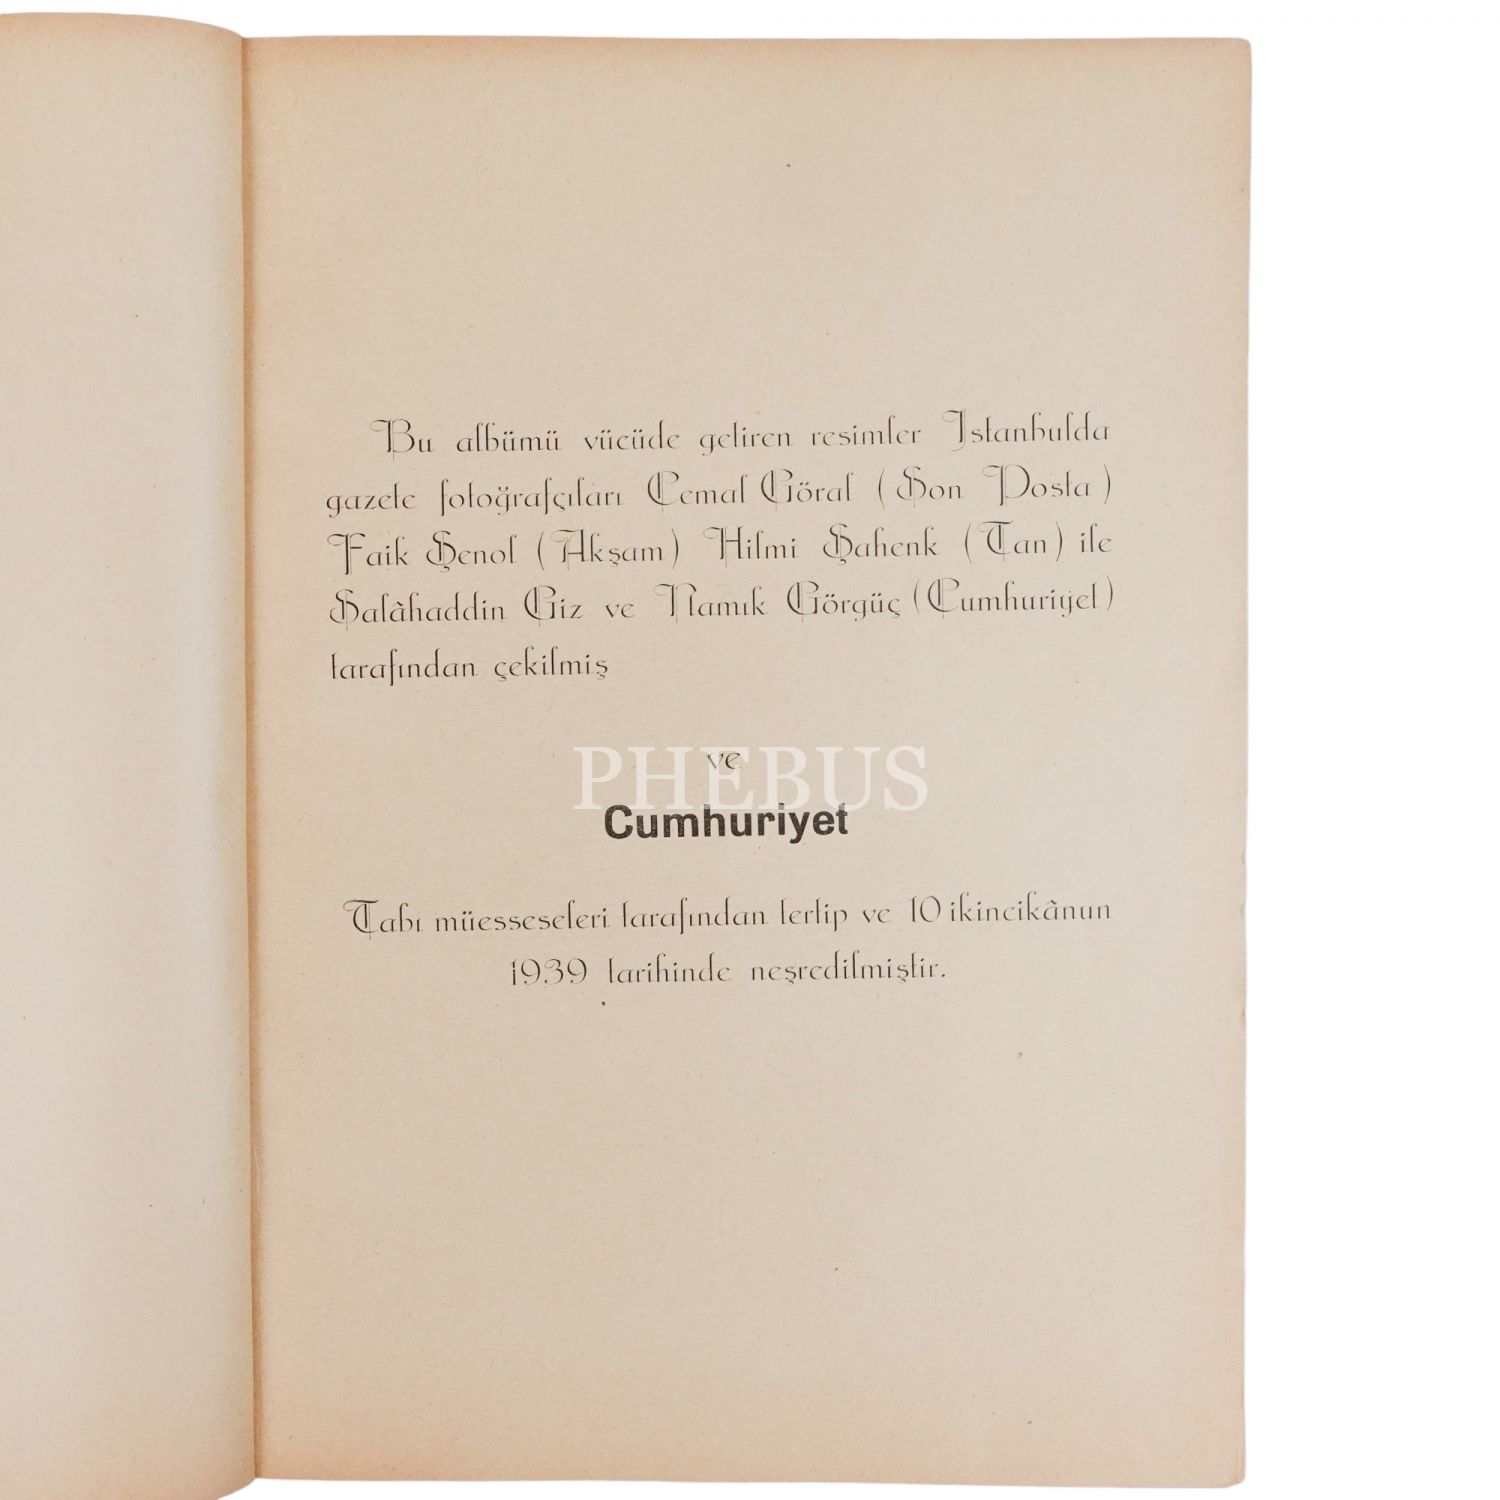 Bu albümü vücüde getiren resimler Istanbulda
gazete fotoğrafçıları Cemal Göral (Son Posta)
Faik Şenol (Akşam) Hilmi Şahenk (Tan) ile
Salâhaddin Giz ve Namık Görgüç (Cumhuriyet)
tarafından çekilmiş
ve
PHEBUS
Cumhuriyet
Tabı müesseseleri tarafından tertip ve 10 ikincikânun
1939 tarihinde neşredilmiştir.